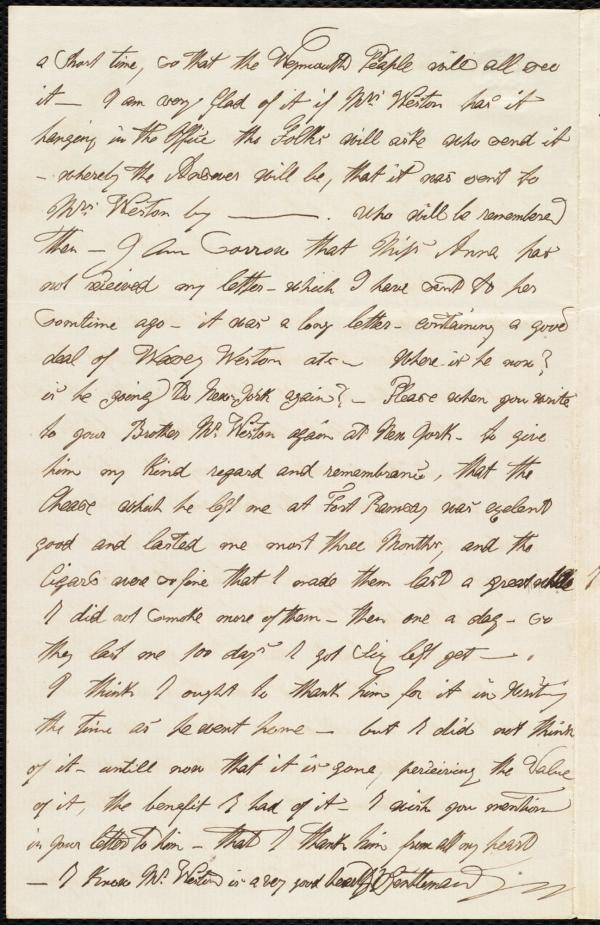 a short time, so that the Weymouth People will all see
it — I am very glad of it if Mrs Weston has it
hanging in the Office the Folks will aske who send it
— whereby the Answer will be, that it was sent to
Mrs Weston by ———. who will be remembered
then — I am Sorrow that Miss Anna has
not received my letter — which I have sent to her
Somtime ago — it was a long letter — containing a good
deal of Weston at — where is he now?
is he going to New-York again? — Please when you write
to your Brother Mr. Weston again at New York — to give
him my Kind regard and remembrance, that the
Chease which he left me at Fort Ramsey was exelent
good and lasted me most three Months, and the
Cigars were so fine that I made them last a great while
I did not smoke more of them — then one a day — so
they last me 100 days I got Six left yet —.
I think I ought to thank him for it in writing
the time as he went home — but I did not think
of it — untill now that it is gone, perceiving the Value
of it, the benefit I had of it — I wish you mention
in your letter to him — that I thank him from all my heart
— I Know Mr. Weston is a very good Gentleman